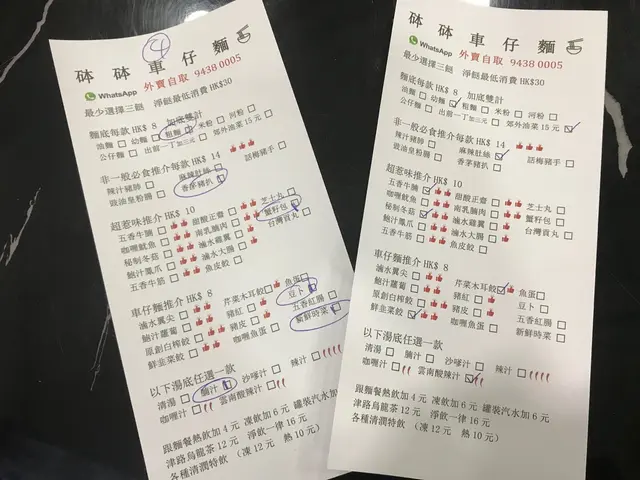 ④
砵砵車仔麵
WhatsApp 外賣自取 9438 0005
最少選擇三餸 淨餸最低消費 HK$30
麵底每款 HK$ 8 加底雙計
油麵 幼麵 粗麵 米粉 河粉
公仔麵 出前一丁加三元 郊外油菜 15 元
非一般必食推介每款 HK$ 14
辣汁豬肺 麻辣肚絲 話梅豬手
豉油皇粉腸 香茅豬扒
超惹味推介 HK$ 10
五香牛腩 甜酸正齋 芝士丸
咖喱魷魚 南乳腩肉 蟹籽包
秘制冬菇 滷水雞翼 台灣貢丸
鮑汁鳳爪 滷水大腸
五香牛筋 魚皮餃
車仔麵推介 HK$ 8
滷水翼尖 芹菜木耳餃 魚蛋
鮑汁蘿蔔 豬紅 豆卜
原創白榨餃 豬皮 五香紅腸
鮮韭菜餃 咖喱魚蛋 新鮮時菜
以下湯底任選一款
清湯 腩汁 沙嗲汁 辣汁
咖喱汁 雲南酸辣汁
跟麵餐熱飲加 4 元 凍飲加 6 元 罐裝汽水加 6 元
津路烏龍茶 12 元 淨飲一律 16 元
各種清潤特飲 (凍 12 元 熱 10 元)
砵砵車仔麵
WhatsApp 外賣自取 9438 0005
最少選擇三餸 淨餸最低消費 HK$30
麵底每款 HK$ 8 加底雙計
油麵 幼麵 粗麵 米粉 河粉
公仔麵 出前一丁加三元 郊外油菜 15 元
非一般必食推介每款 HK$ 14
辣汁豬肺 麻辣肚絲 話梅豬手
豉油皇粉腸 香茅豬扒
超惹味推介 HK$ 10
五香牛腩 甜酸正齋 芝士丸
咖喱魷魚 南乳腩肉 蟹籽包
秘制冬菇 滷水雞翼 台灣貢丸
鮑汁鳳爪 滷水大腸
五香牛筋 魚皮餃
車仔麵推介 HK$ 8
滷水翼尖 芹菜木耳餃 魚蛋
鮑汁蘿蔔 豬紅 豆卜
原創白榨餃 豬皮 五香紅腸
鮮韭菜餃 咖喱魚蛋 新鮮時菜
以下湯底任選一款
清湯 腩汁 沙嗲汁 辣汁
咖喱汁 雲南酸辣汁
跟麵餐熱飲加 4 元 凍飲加 6 元 罐裝汽水加 6 元
津路烏龍茶 12 元 淨飲一律 16 元
各種清潤特飲 (凍 12 元 熱 10 元)